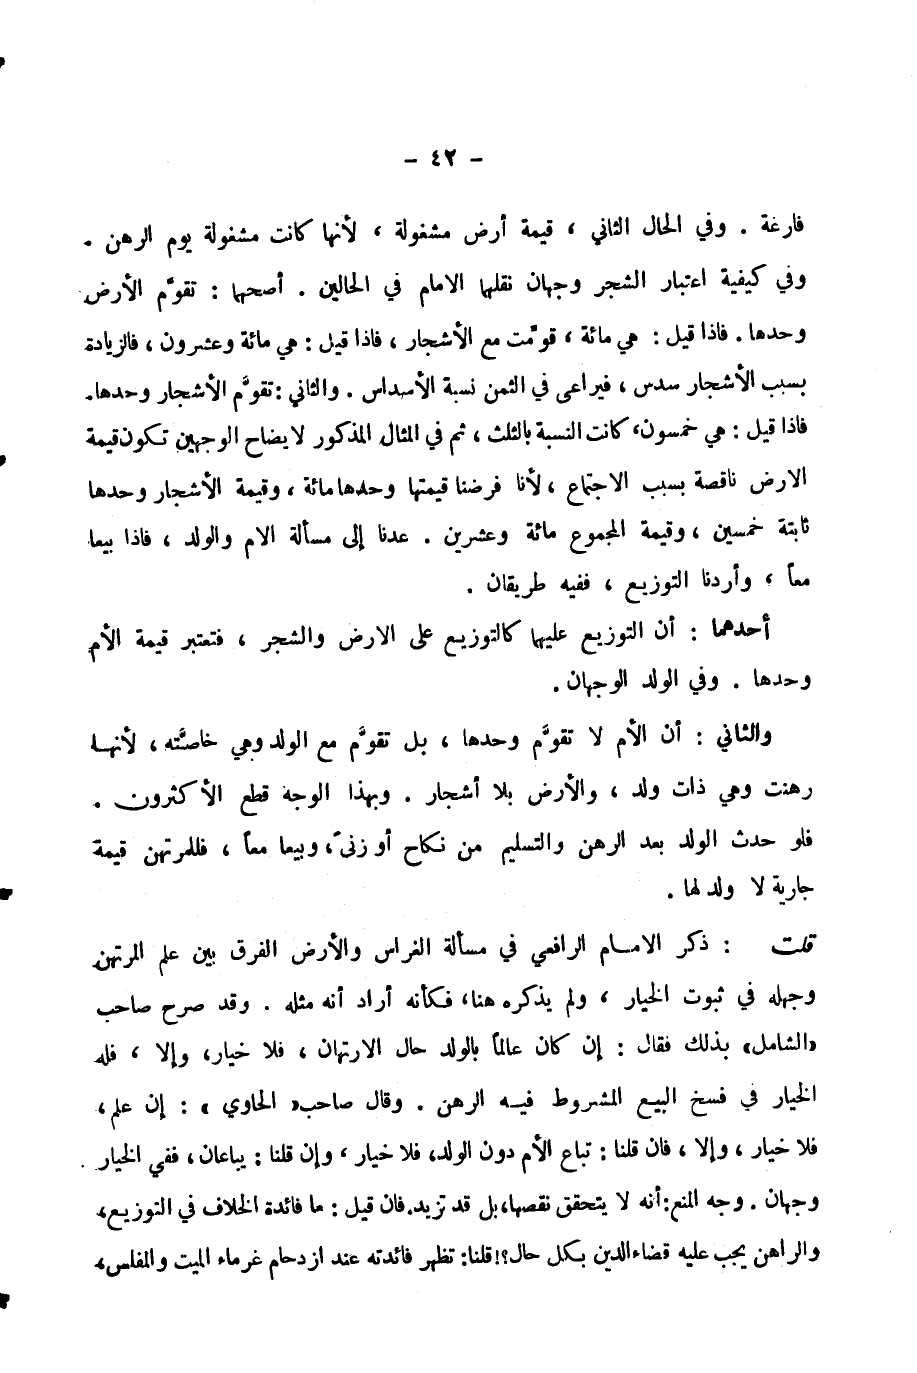 - ٤٢ -
فارغة . وفي الحال الثاني ، قيمة أرض مشغولة ، لأنها كانت مشغولة يوم الرهن .
وفي كيفية اعتبار الشجر وجهان نقلها الامام في الحالين . أصحها : تقوَّم الأرض
وحدها . فاذا قيل : هي مائة ، قوّمت مع الأشجار ، فاذا قيل : هي مائة وعشرون ، فالزيادة
بسبب الأشجار سدس ، فيراعى في الثمن نسبة الأسداس . والثاني : تقوَّم الأشجار وحدها.
فاذا قيل : هي خمسون، كانت النسبة بالثلث ، ثم في المثال المذكور لايضاح الوجهين تكون قيمة
الارض ناقصة بسبب الاجتماع ، لأنا فرضنا قيمتها وحدها مائة ، وقيمة الأشجار وحدها
ثابتة خمسين ، وقيمة المجموع مائة وعشرين . عدنا إلى مسألة الام والولد ، فاذا بيعا
معاً ، وأردنا التوزيع ، ففيه طريقان .
أحدهما : أن التوزيع عليها كالتوزيع على الارض والشجر ، فتعتبر قيمة الأم
وحدها . وفي الولد الوجهان .
والثاني : أن الأم لا تقوَّم وحدها ، بل تقوَّم مع الولد وهي خاصَّته ، لأنهـا
رهنت وهي ذات ولد ، والأرض بلا أشجار . وبهذا الوجه قطع الأكثرون .
فلو حدث الولد بعد الرهن والتسليم من نكاح أو زنىً، وبيعا معاً ، فللمرتهن قيمة
جارية لا ولد لها .
قلت : ذكر الامـام الرافعي في مسألة الغراس والأرض الفرق بين علم المرتهن
وجهله في ثبوت الخيار ، ولم يذكره هنا، فكأنه أراد أنه مثله . وقد صرح صاحب
«الشامل» بذلك فقال : إن كان عالماً بالولد حال الارتهان ، فلا خيار، وإلا ، فله
الخيار في فسخ البيع المشروط فيـه الرهن . وقال صاحب« الحاوي » : إن علم،
فلا خيار ، وإلا ، فان قلنا : تباع الأم دون الولد، فلا خيار ، وإن قلنا : يباعان ، ففي الخيار
وجهان . وجه المنع: أنه لا يتحقق نقصها، بل قد تزيد. فان قيل : ما فائدة الخلاف في التوزيع،
والراهن يجب عليه قضاء الدين بكل حال؟! قلنا: تظهر فائدته عند ازدحام غرماء الميت والمفلس،